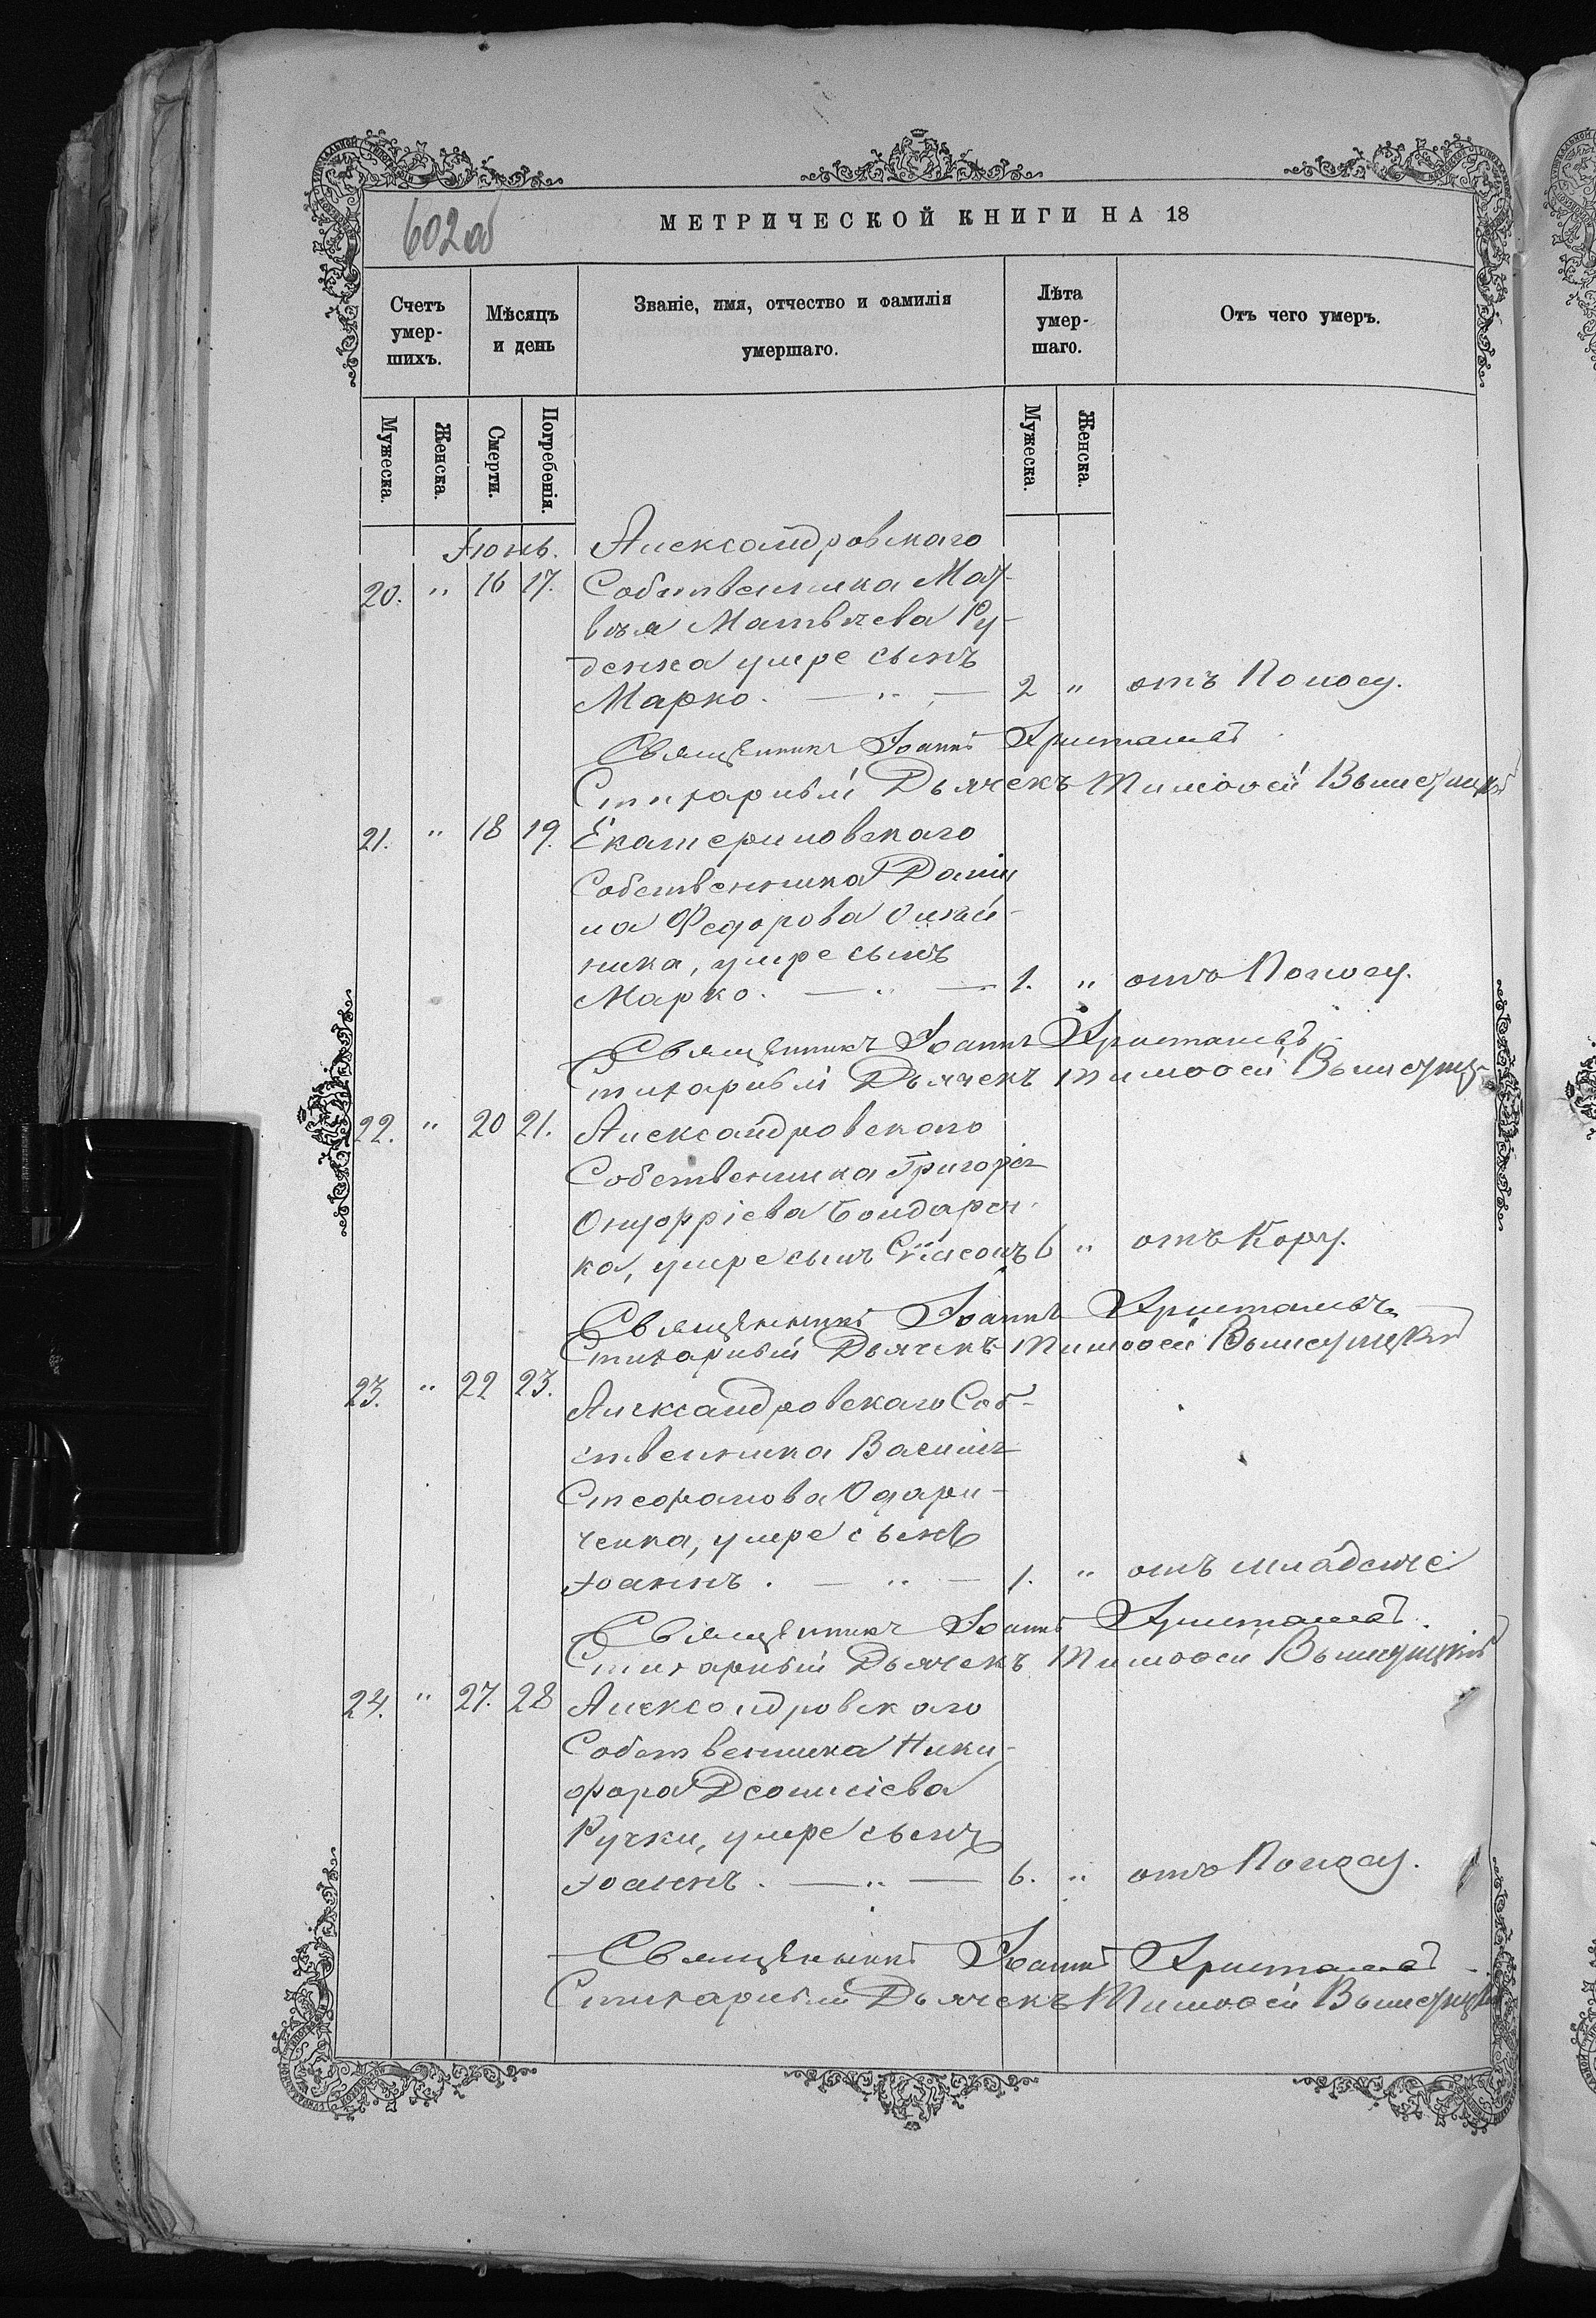 602об
МЕТРИЧЕСКОЙ КНИГИ НА 18
Счетъ умер-шихъ.
Мѣсяцъ и день
Званіе, имя, отчество и фамилія умершаго.
Лѣта умер-шаго.
Отъ чего умеръ.
Мужеска.
Женска.
Смерти.
Погребенія.
Мужеска.
Женска.
Іюнь. Александровскаго
20. " 16 17. Собственника Мат-
вѣя Матвѣева Ру-
денка умре сынъ
Марко. — " — 2 " отъ Поносу.
Священникъ Іоаннъ
Стихарный Дьячекъ Тимоѳей
21. " 18 19. Екатериновскаго
Собственника Даніи
ла Федорова Олѣй-
ника, умре сынъ
Марко. — " — 1. " отъ Поносу.
Священникъ Іоаннъ
Стихарный Дьячекъ Тимоѳей
22. " 20 21. Александровскаго
Собственника Григорія
Онуфріева Бондарен
ка, умре сынъ 6 " отъ Кору.
Священникъ Іоаннъ
Стихарный Дьячекъ Тимоѳей
23. " 22 23. Александровскаго Соб-
ственника Василія
Стефанова Одари-
ченка, умре сынъ
Іоаннъ. — " — 1. " отъ младенче
Священникъ Іоаннъ
Стихарный Дьячекъ Тимоѳей
24. " 27. 28 Александровскаго
Собственника Ники-
фора Деонисіева
Ручки, умре сынъ
Іоаннъ. — " — 6. " отъ Поносу.
Священникъ Іоаннъ
Стихарный Дьячекъ Тимоѳей